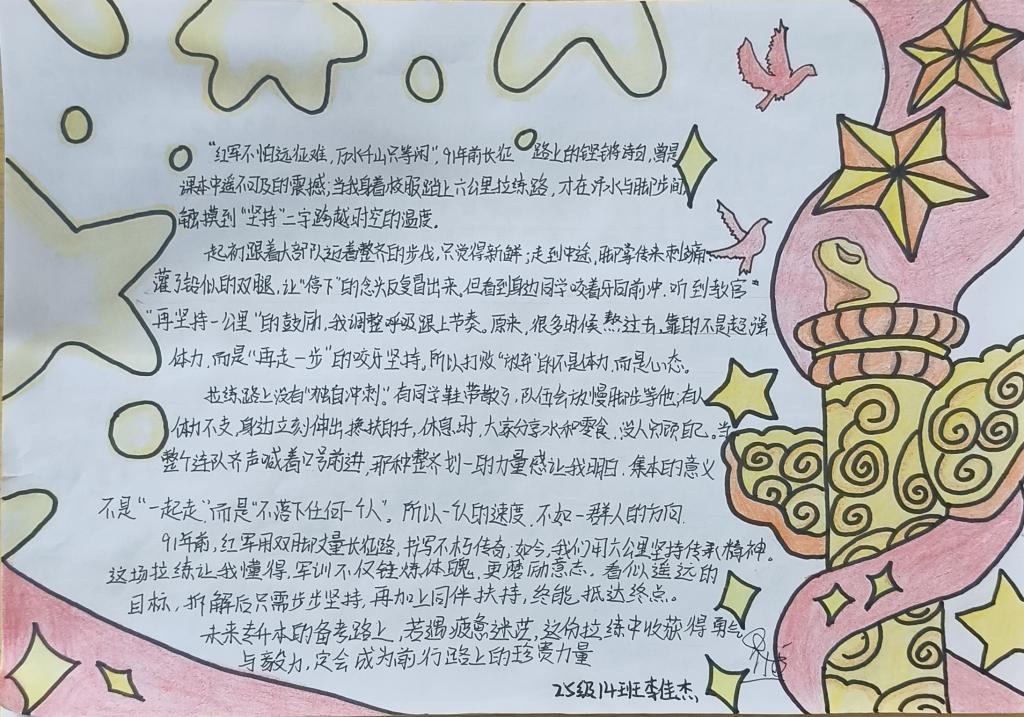 "红军不怕远征难，万水千山只等闲"，91年前长征路上的铿锵诗句，曾是
课本中遥不可及的震撼；当我身着校服踏上六公里拉练路，才在汗水与脚步间
触摸到"坚持"二字跨越时空的温度。
起初跟着大部队迈着整齐的步伐，只觉得新鲜；走到中途，脚掌传来刺痛、
灌了铅似的双腿，让"停下"的念头反复冒出来。但看到身边同学咬着牙向前冲，听到教官
"再坚持一公里"的鼓励，我调整呼吸跟上节奏。原来，很多时候熬过去，靠的不是超强
体力，而是"再走一步"的咬牙坚持。所以打败"放弃"的不是体力，而是心态。
拉练路上没有"独自冲刺"。有同学鞋带散了，队伍会放慢脚步等他；有人
体力不支，身边立刻伸出搀扶的手，休息时，大家分享水和零食，没人只顾自己。当
整个连队齐声喊着口号前进，那种整齐划一的力量感让我明白，集体的意义
不是"一起走"，而是"不落下任何一个人"。所以一个人的速度，不如一群人的方向
91年前，红军用双脚丈量长征路，书写不朽传奇；如今，我们用六公里坚持传承精神。
这场拉练让我懂得，军训不仅锤炼体魄，更磨励意志。看似遥远的
目标，拆解后只需步步坚持，再加上同伴扶持，终能抵达终点。
未来专升本的备考路上，若遇疲惫迷茫，这份拉练中收获得勇气
与毅力，定会成为前行路上的珍贵力量
25级14班李佳杰